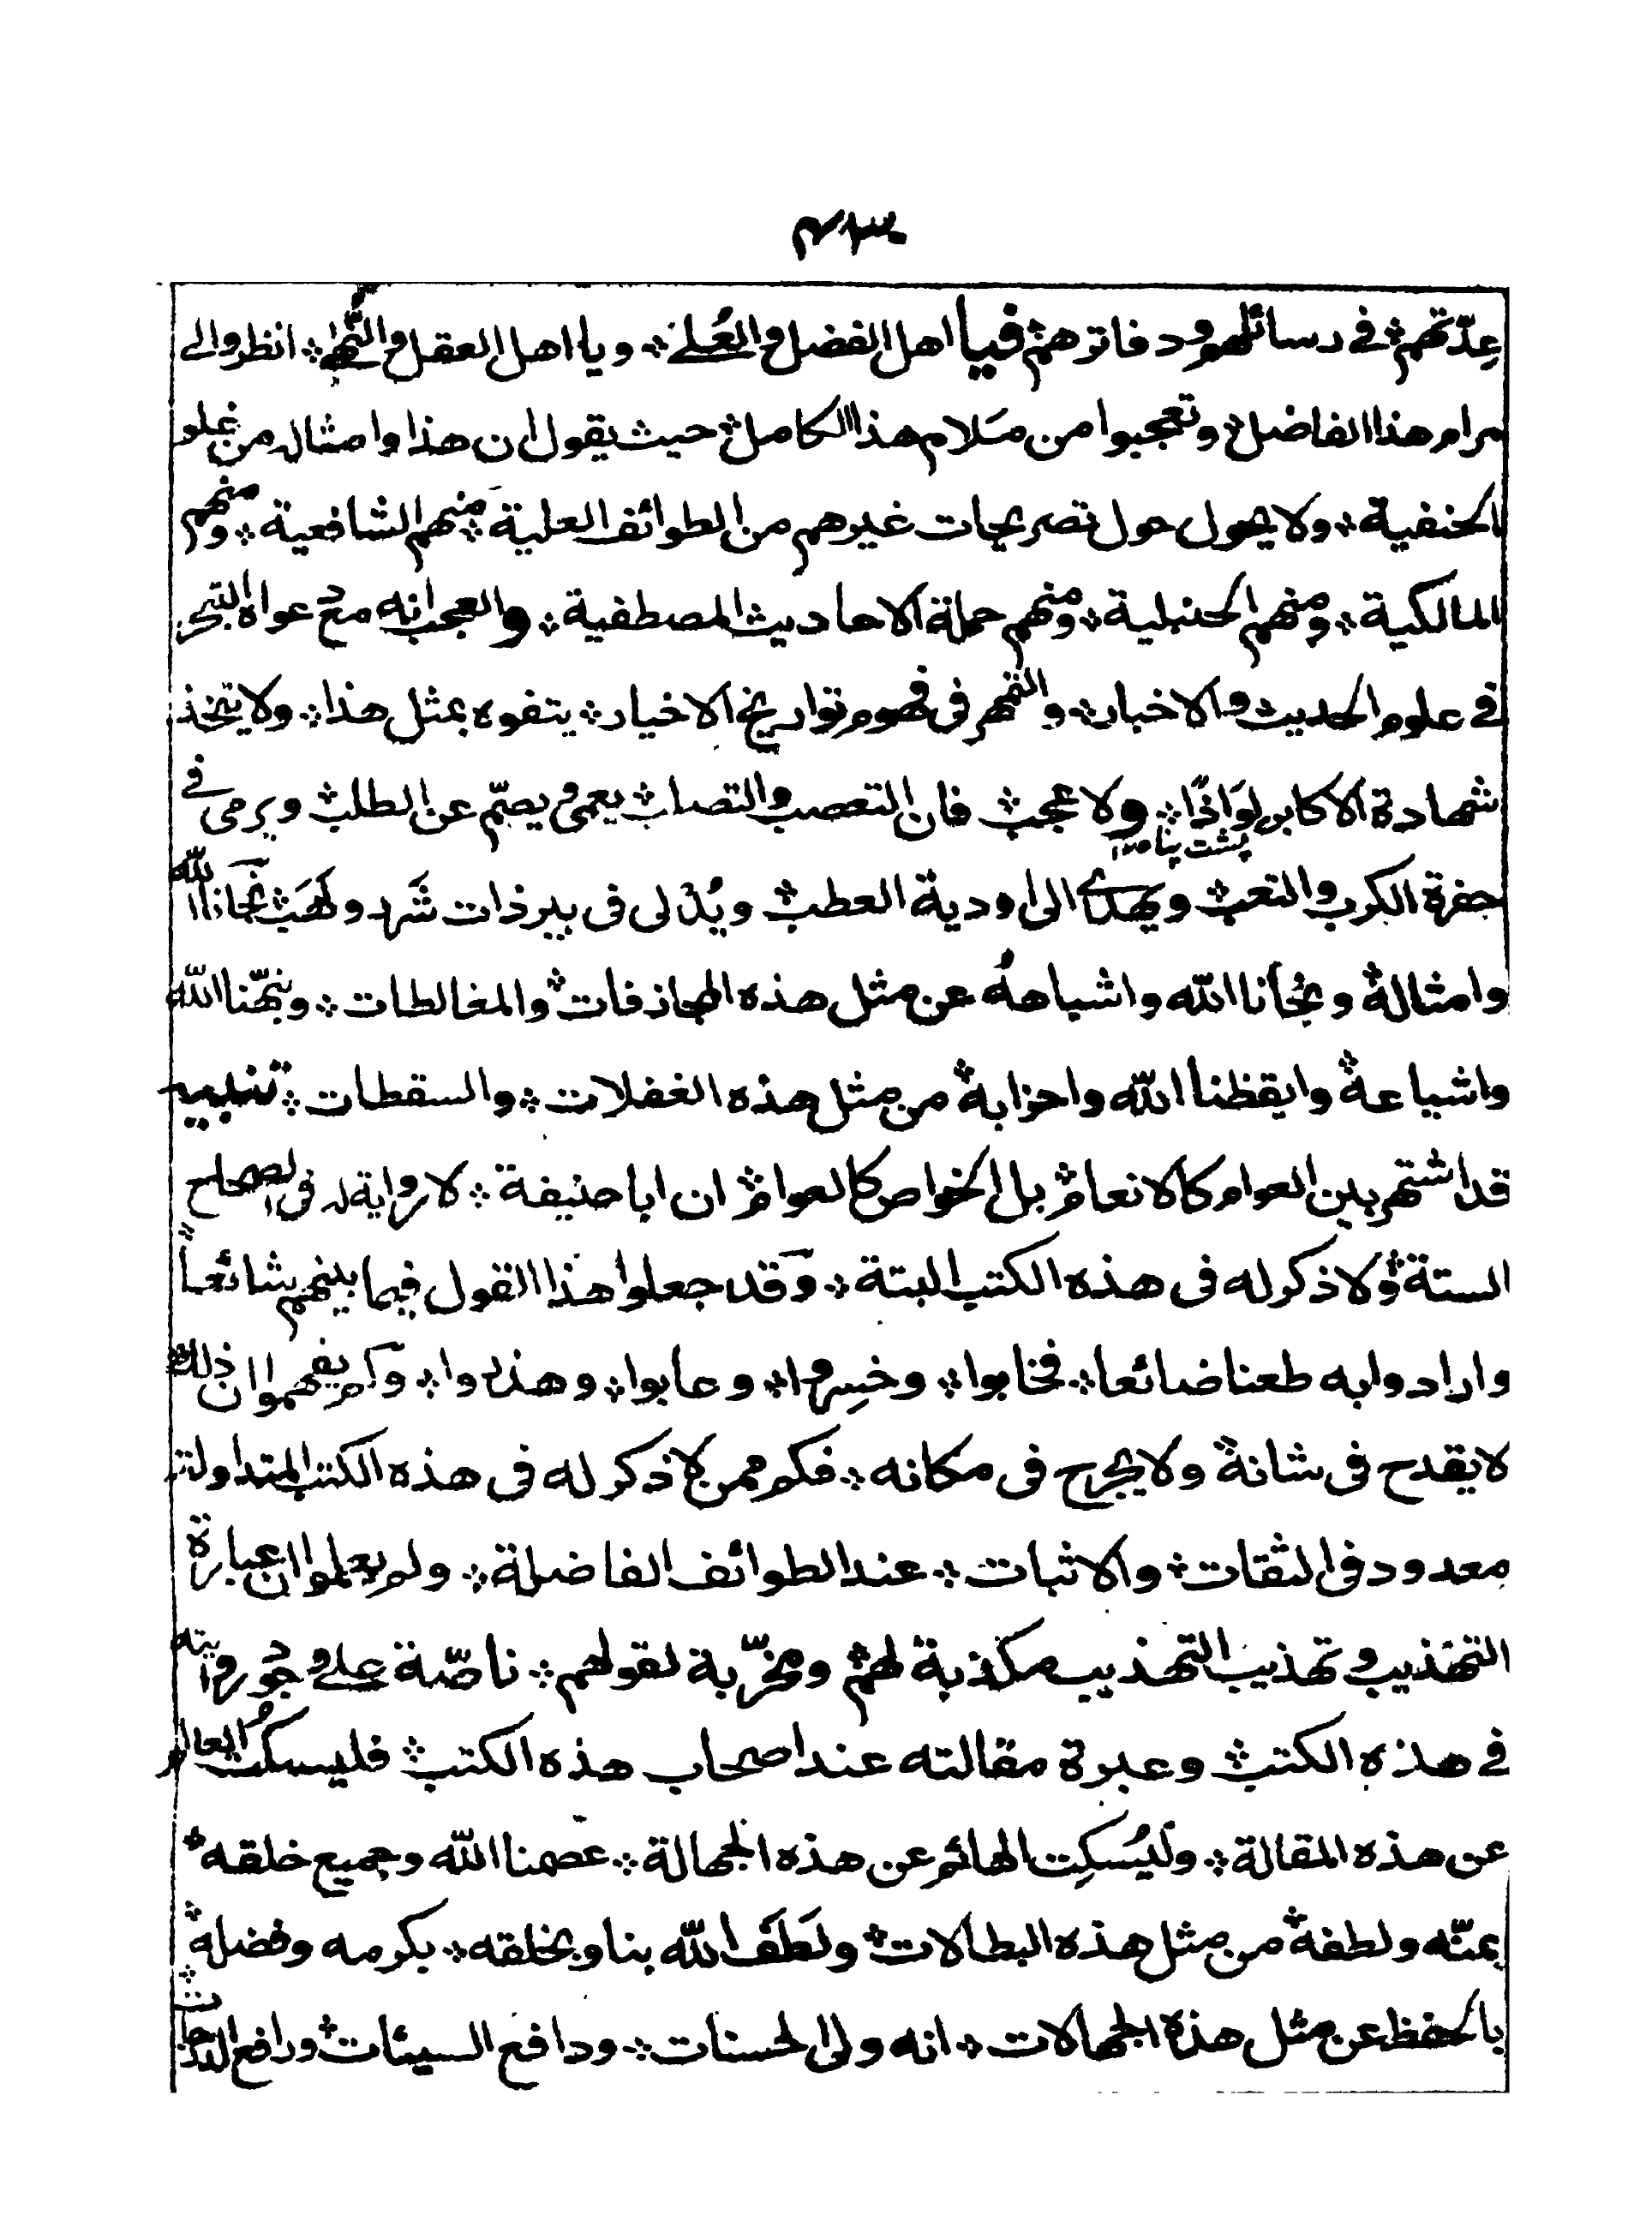 ٤١٣
عِدّتهم؞ في رسائلهم ودفاترهم؞ فيا اهل الفضل والعُلى؞ ويا اهل العقل والنُّهى؞ انظروا الى
مرام هذا الفاضل؞ وتعجبوا من مَلام هذا الكامل؞ حيث يقول ان هذا وامثاله من غلو
الحنفية؞ ولا يحول حول تصريحات غيرهم من الطوائف العلية؞ منهم الشافعية؞ ومنهم
المالكية؞ ومنهم الحنبلية؞ ومنهم حملة الاحاديث المصطفية؞ والعجب انه مع دعواه التبحر
في علوم الحديث والاخبار؞ والتمهر فى فهوم تواريخ الاخيار؞ يتفوه بمثل هذا؞ ولا يتخذ
شهادة الاكابر لِوَاذًا؞ ولا عجب؞ فان التعصب والتصلب؞ يعمى ويصمّ عن الطلب؞ ويرمى في
پشت پناه ١٢
حفرة الكرب والتعب؞ ويهدى الى اودية العطب؞ ويُدْلى فى بير ذات شَرَر ولَهَب؞ نجانا الله
وامثاله؞ ونجّانا الله واشباهه؞ عن مثل هذه المجازفات؞ والمغالطات؞ ونبّهنا الله
واشياعه؞ وايقظنا الله واحزابه؞ من مثل هذه الغفلات؞ والسقطات؞ تنبيه
قد اشتهر بين العوام كالانعام؞ بل الخواص كالعوام؞ ان ابا حنيفة؞ لا رواية له فى الصحاح
الستة؞ ولا ذكر له فى هذه الكتب البتة؞ وقد جعلوا هذا القول فيما بينهم شائعاً؞
وارادوا به طعنا ضائعا؞ فخابوا؞ وخسِروا؞ وعابوا؞ وهذروا؞ ولم يفهموا ان ذلك
لا يقدح فى شانه؞ ولا يجرح فى مكانه؞ فكم ممن لا ذكر له فى هذه الكتب المتداولة
معدود فى الثقات؞ والاثبات؞ عند الطوائف الفاضلة؞ ولم يعلموا ان عبارة
التهذيب وتهذيب التهذيب مكذبة لهم؞ ومخرّبة لقولهم؞ ناصّة على وجود روايته
في هذه الكتب؞ وعبرة مقالته عند اصحاب هذه الكتب؞ فليسكُت العالم
عن هذه المقالة؞ وليُسكِت الهائم عن هذه الجهالة؞ عصمنا الله وجميع خلقه؞
بمنّه ولطفه؞ من مثل هذه البطالات؞ ولَطَفَ الله بنا وبخلقه؞ بكرمه وفضله؞
بالحفظ عن مثل هذه الجهالات؞ انه ولى الحسنات؞ ودافع السيئات؞ ورافع الدرجات؞